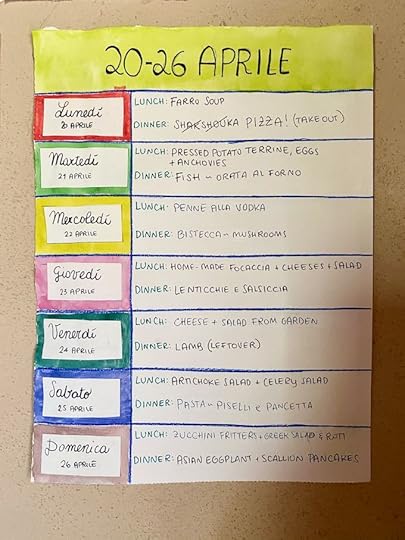 20-26 APRILE
Lunedí
20 APRILE
LUNCH: FARRO SOUP
DINNER: SHAKSHOUKA PIZZA! (TAKE OUT)
Martedí
21 APRILE
LUNCH: PRESSED POTATO TERRINE, EGGS
+ ANCHOVIES
DINNER: FISH ~ ORATA AL FORNO
Mercoledí
22 APRILE
LUNCH: PENNE ALLA VODKA
DINNER: BISTECCA ~ MUSHROOMS
Giovedí
23 APRILE
LUNCH: HOME-MADE FOCACCIA + CHEESES + SALAD
DINNER: LENTICCHIE E SALSICCIA
Venerdí
24 APRILE
LUNCH: CHEESE + SALAD FROM GARDEN
DINNER: LAMB (LEFTOVER)
Sabato
25 APRILE
LUNCH: ARTICHOKE SALAD + CELERY SALAD
DINNER: PASTA ~ PISELLI e PANCETTA
Domenica
26 APRILE
LUNCH: ZUCCHINI FRITTERS + GREEK SALAD & ROTI
DINNER: ASIAN EGGPLANT + SCALLION PANCAKES